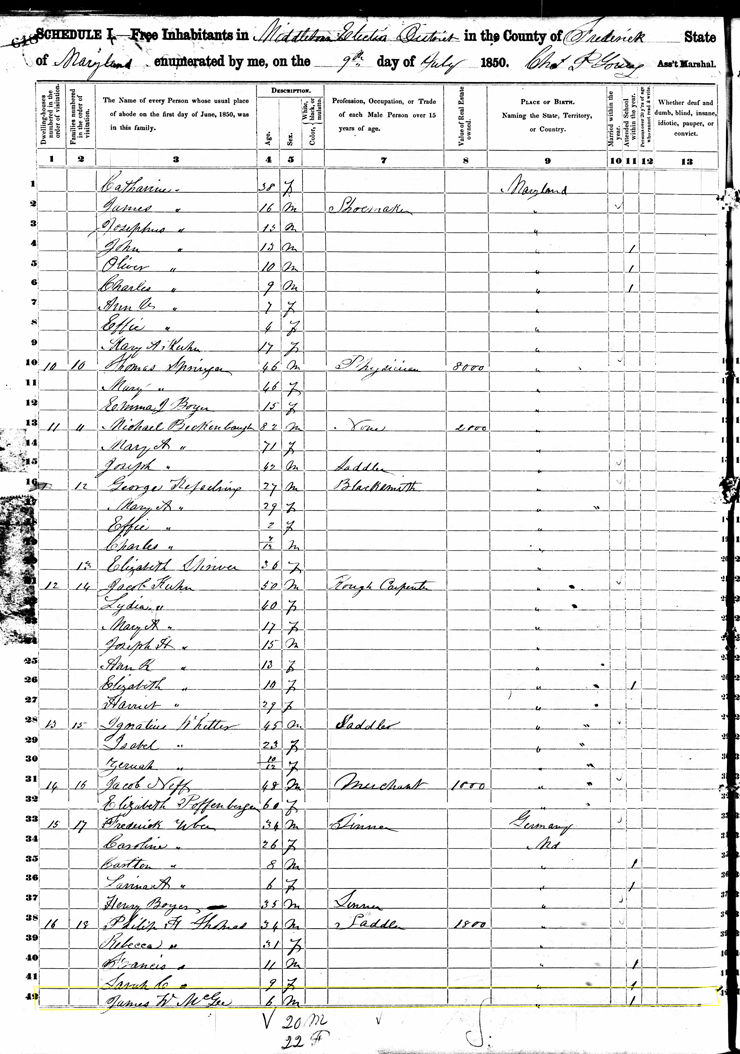 SCHEDULE I.—Free Inhabitants in Middletown Election District in the County of Frederick State
of Maryland enumerated by me, on the 9th day of July 1850. Chas F Young Ass't Marshal.
Dwelling-houses numbered in the order of visitation.
Families numbered in the order of visitation.
The Name of every Person whose usual place of abode on the first day of June, 1850, was in this family.
DESCRIPTION.
Age.
Sex.
Color, White, black, or mulatto.
Profession, Occupation, or Trade of each Male Person over 15 years of age.
Value of Real Estate owned.
PLACE OF BIRTH. Naming the State, Territory, or Country.
Married within the year.
Attended School within the year.
Persons over 20 y'rs of age who cannot read & write.
Whether deaf and dumb, blind, insane, idiotic, pauper, or convict.
1 2 3 4 5 6 7 8 9 10 11 12 13
1 Catharine " 38 F Maryland
2 James " 16 M Shoemaker "
3 Josephus " 15 M "
4 John " 13 M " 1
5 Oliver " 10 M " 1
6 Charles " 9 M " 1
7 Ann " 7 F "
8 Effie " 4 F "
9 Mary A Kuhn 17 F "
10 10 10 Thomas Springer 46 M Physician 8000 "
11 Mary " 46 F "
12 Emma J Boyer 15 F "
13 11 11 Michael Beckenbaugh 82 M None 2000 "
14 Mary A " 71 F "
15 Joseph " 42 M Saddler "
16 12 George 27 M Blacksmith "
Mary A " 29 F "
Effie " 2 F "
Charles " M "
13 Elizabeth 36 F "
12 14 Jacob Kuhn 50 M Rough Carpenter "
Lydia " 40 F "
Mary A " 17 F "
Joseph H " 15 M "
25 Ann R " 13 F "
26 Elizabeth " 10 F " 1
27 Harriet " 29 F "
28 13 15 Ignatius Whitter 45 M Saddler "
29 Isabel " 23 F "
30 Zeruah " 10/12 F "
31 14 16 Jacob Neff 48 M Merchant 1800 "
32 Elizabeth Poffenberger 60 F "
33 15 17 Frederick 34 M Tinner Germany
34 Caroline " 26 F Md
35 Carlton " 8 M " 1
36 " 6 F " 1
37 Henry Boyer 35 M Tinner "
38 16 18 Philip F Thomas 34 M Saddler 1800 "
39 Rebecca " 31 F "
40 Francis " 11 M " 1
41 Sarah C " 9 F " 1
42 James W McGee 6 M " 1
20 M
22 F